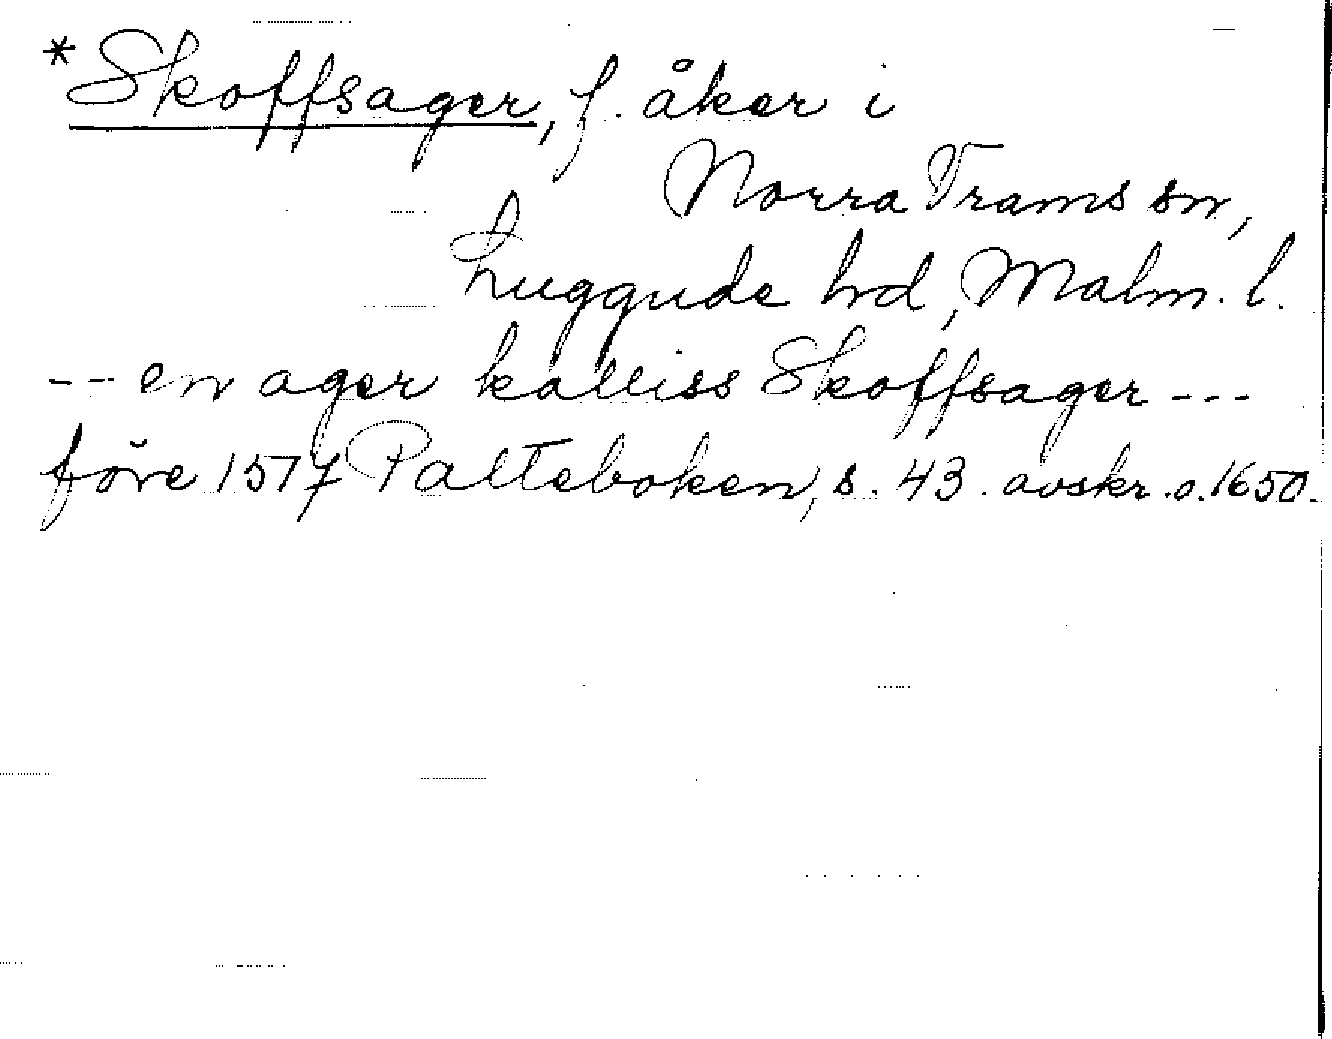 *Skoffsager, f. åker i
Norra Vrams sn,
Luggude hd, Malm. l.
-- en ager kalliss Skoffsager ---
före 1577 Palteboken, s. 43. avskr. o. 1650.